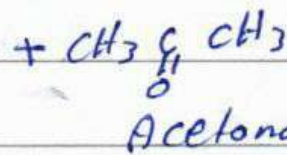 + CH3 C CH3
O
Acetone